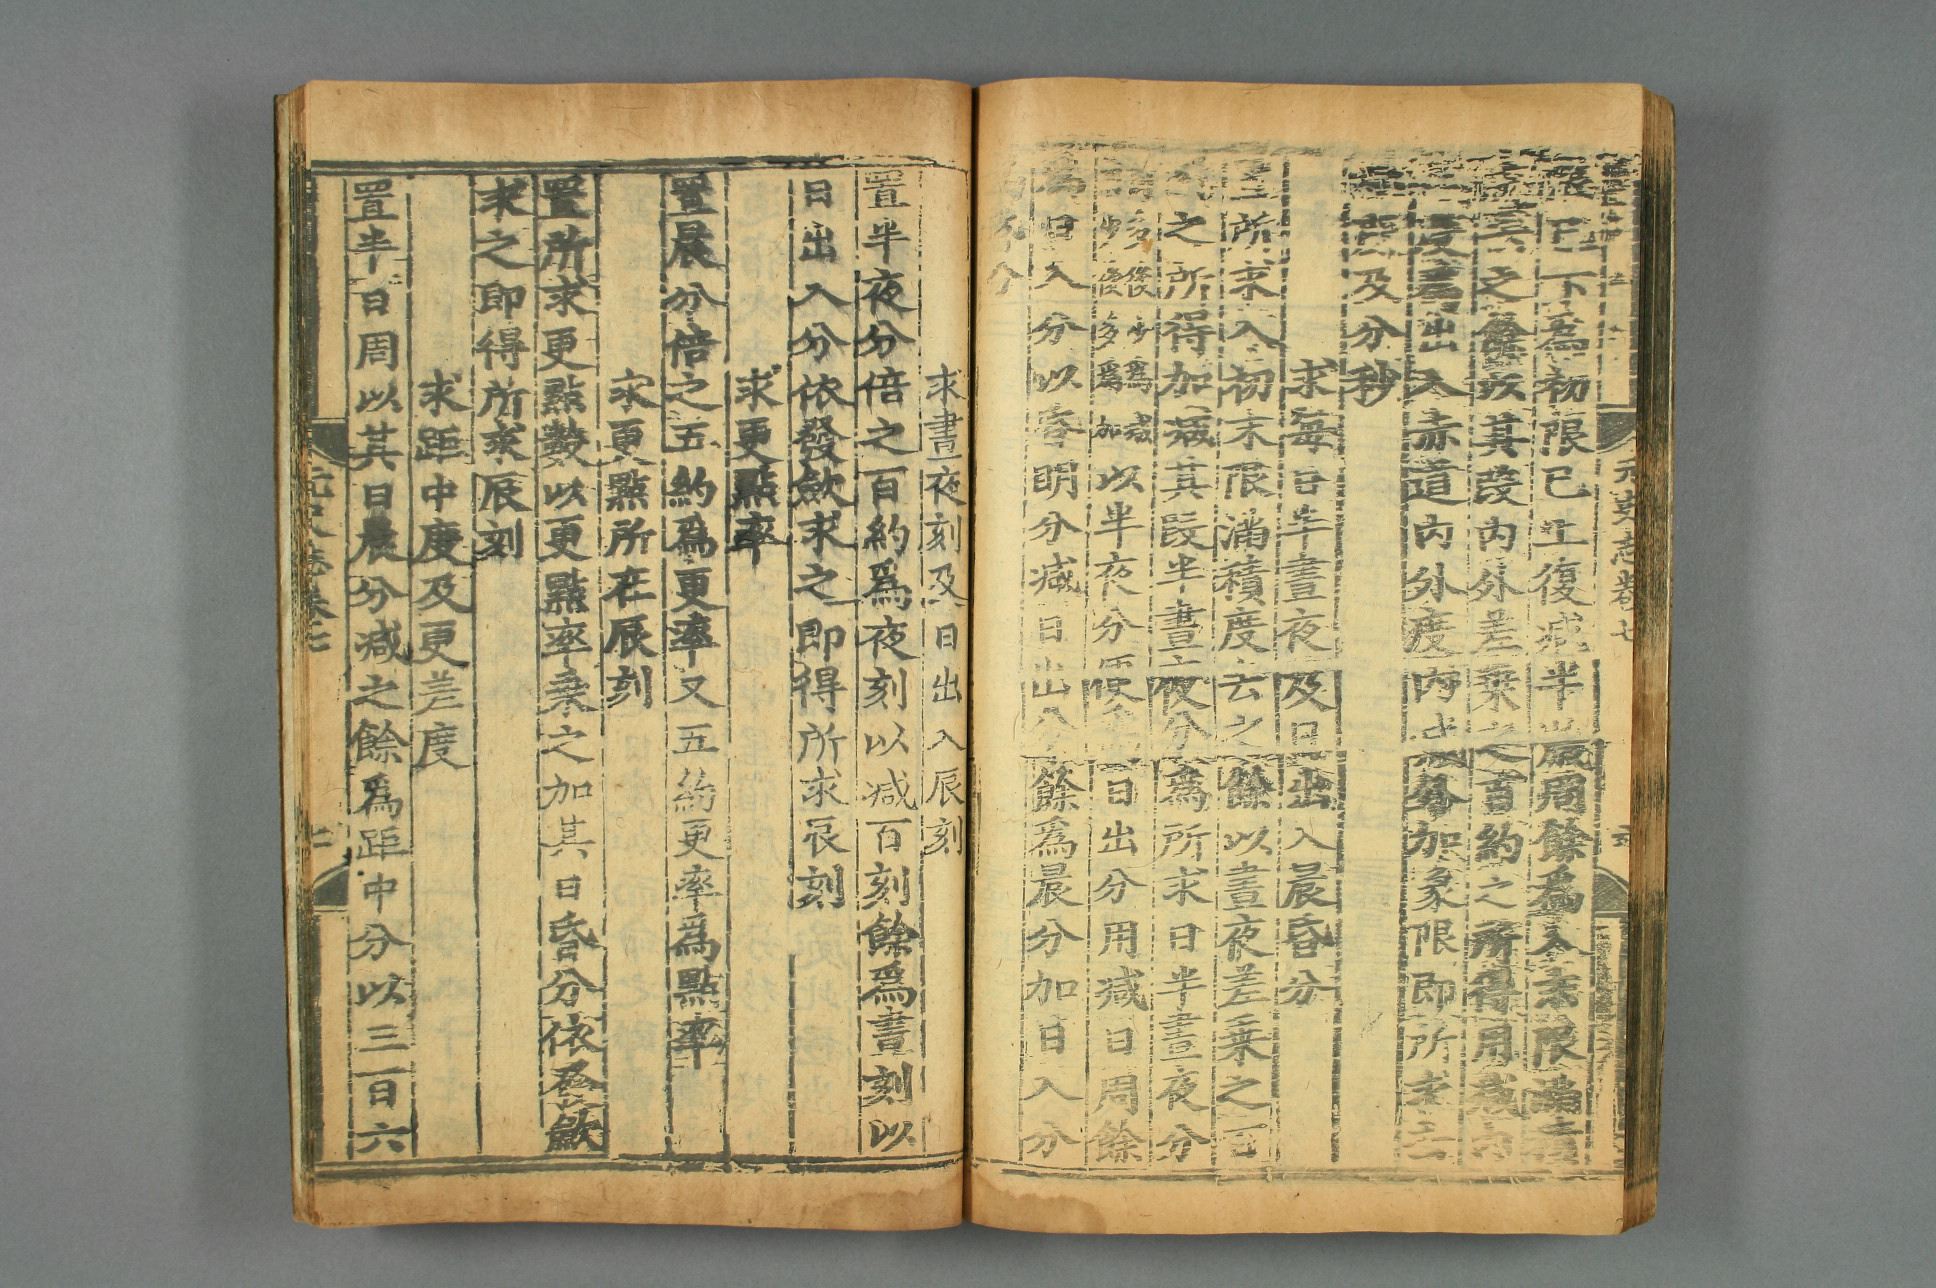 元史志卷七
限已下爲初限已上復減半歲周餘爲入末限滿積
之餘浚其段內外差乘之百約之所得用減內
度爲出入赤道內外度內減外加象限即所求去
極度及分秒
求每日半晝夜及日出入晨昏分
置所求入初末限滿積度去之餘以晝夜差乘之百
約之所得加減其段半晝夜分爲所求日半晝夜分
前多後少爲減
前少後多爲加
以半夜分便爲日出分用減日周餘
爲日入分以昏明分減日出分餘爲晨分加日入分
爲昏分
求晝夜刻及日出入辰刻
置半夜分倍之百約爲夜刻以減百刻餘爲晝刻以
日出入分依發斂求之即得所求辰刻
求更點率
置晨分倍之五約爲更率又五約更率爲點率
求更點所在辰刻
置所求更點數以更點率乘之加其日昏分依發斂
求之即得所求辰刻
求距中度及更差度
置半日周以其日晨分減之餘爲距中分以三百六